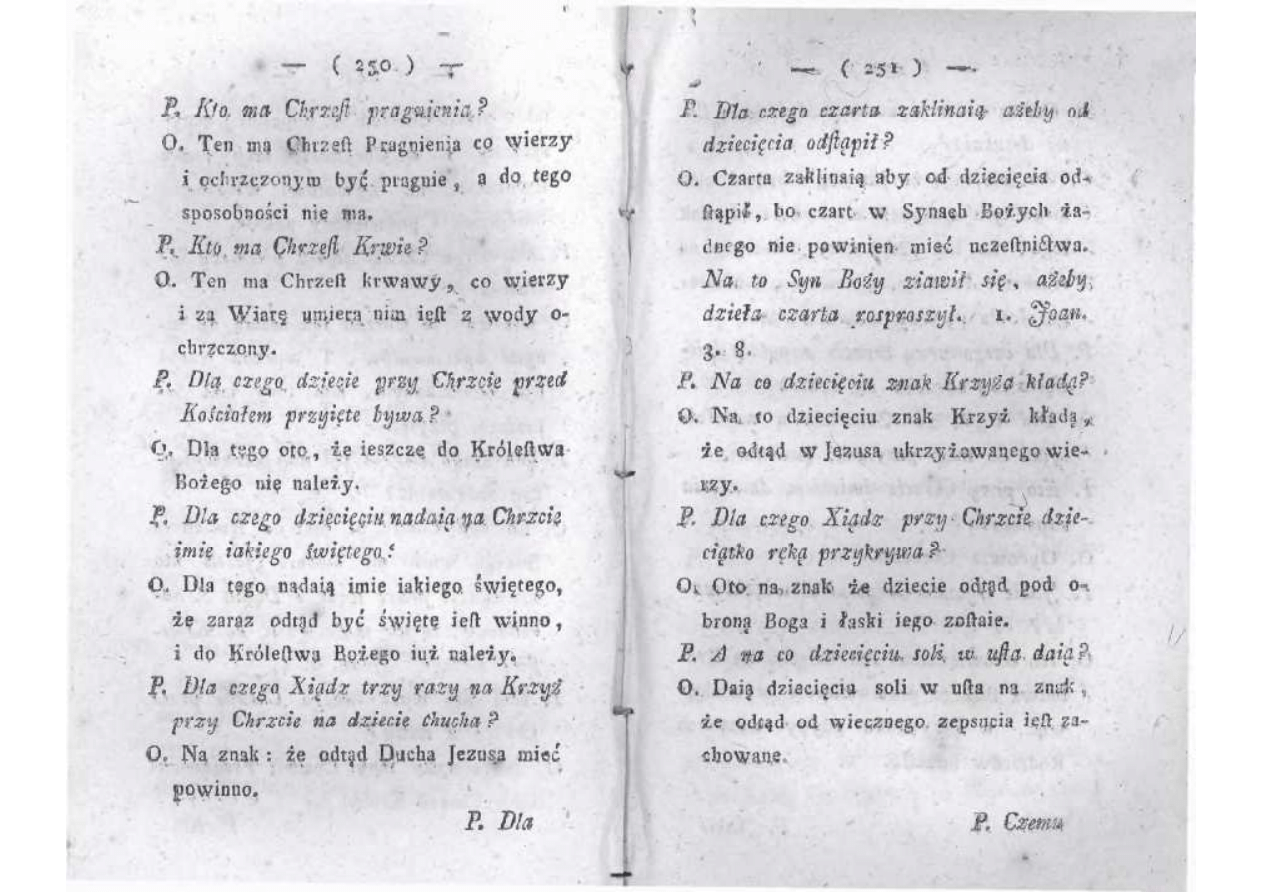 — ( 250 ) —
P. Kto ma Chrzeſt pragnienia?
O. Ten ma Chrzeſt Pragnienia co wierzy
i ochrzczonym być pragnie, a do tego
sposobności nie ma.
P. Kto ma Chrzeſt Krwie?
O. Ten ma Chrzeſt krwawy, co wierzy
i za Wiarę umiera nim ieſt z wody o-
chrzczony.
P. Dla czego dziecie przy Chrzcie przed
Kościołem przyięte bywa?
O. Dla tego oto, że ieszcze do Króleſtwa
Bożego nie należy.
P. Dla czego dziecięciu nadaią na Chrzcie
imie iakiego świętego?
O. Dla tego nadaią imie iakiego świętego,
że zaraz odtąd być święte ieſt winno,
i do Króleſtwa Bożego iuż należy.
P. Dla czego Xiądz trzy razy na Krzyż
przy Chrzcie na dziecie chucha?
O. Na znak: że odtąd Ducha Jezusa mieć
powinno.
P. Dla
— ( 251 ) —.
P. Dla czego czarta zaklinaią ażeby od
dziecięcia odſtąpił?
O. Czarta zaklinaią aby od dziecięcia od-
ſtąpił, bo czart w Synach Bożych ża-
dnego nie powinien mieć uczeſtnictwa.
Na to Syn Boży ziawił się, ażeby
dzieła czarta rosproszył. 1. Joan.
3. 8.
P. Na co dziecięciu znak Krzyża kładą?
O. Na to dziecięciu znak Krzyż kładą,
że odtąd w Jezusa ukrzyżowanego wie-
rzy.
P. Dla czego Xiądz przy Chrzcie dzie-
ciątko ręką przykrywa?
O. Oto na znak że dziecie odtąd pod o-
broną Boga i łaski iego zoſtaie.
P. A na co dziecięciu soli w uſta daią?
O. Daią dziecięcia soli w uſta na znak,
że odtąd od wiecznego zepsucia ieſt za-
chowane.
P. Czemu